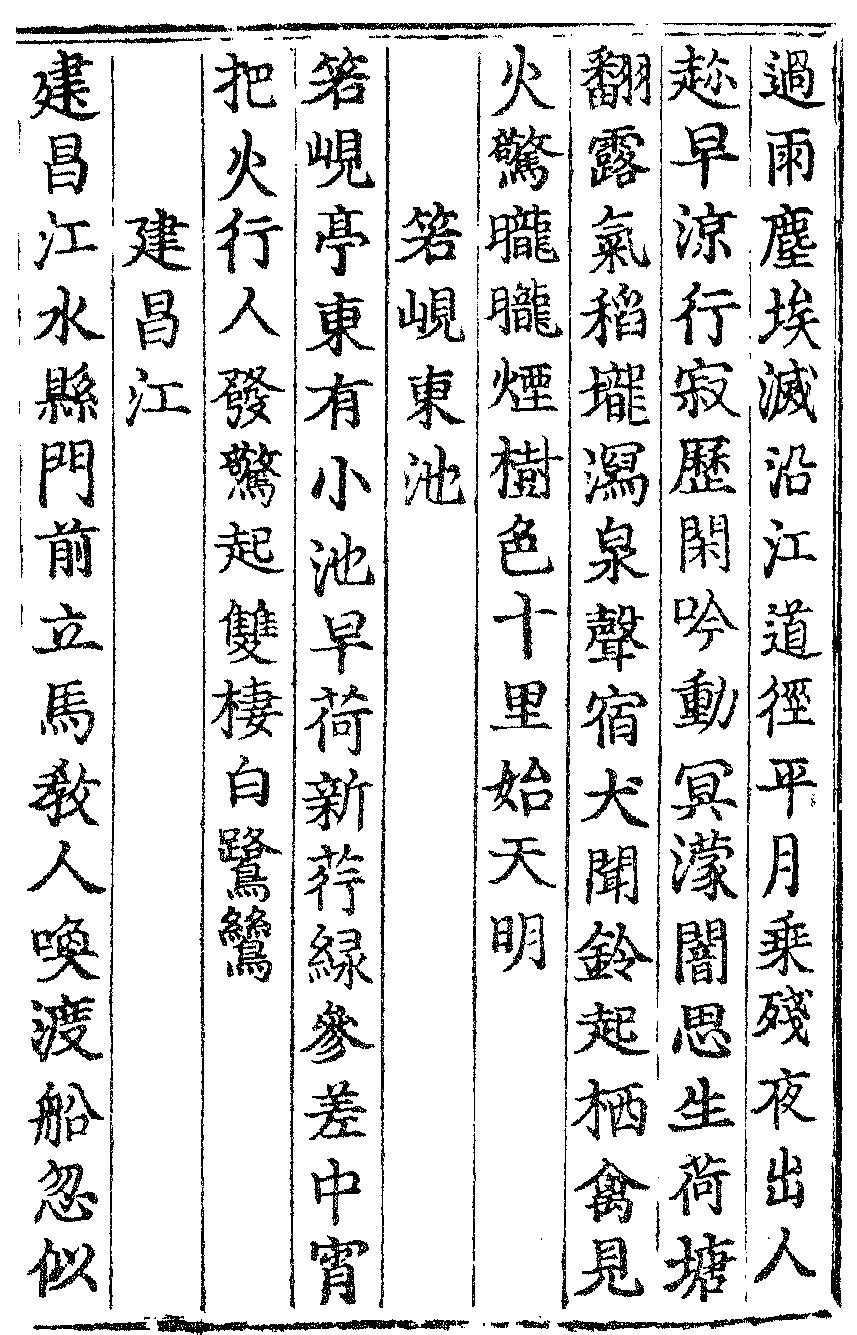 過雨塵埃滅沿江道徑平月乗殘夜出人
趂早涼行寂歷閑吟動冥濛闇思生荷塘
翻露氣稻壠瀉泉聲宿犬聞鈴起栖禽見
火驚曨曨煙樹色十里始天明
箬峴東池
箬峴亭東有小池早荷新荇緑參差中宵
把火行人發驚起雙棲白鷺鷥
建昌江
建昌江水縣門前立馬教人喚渡船忽似